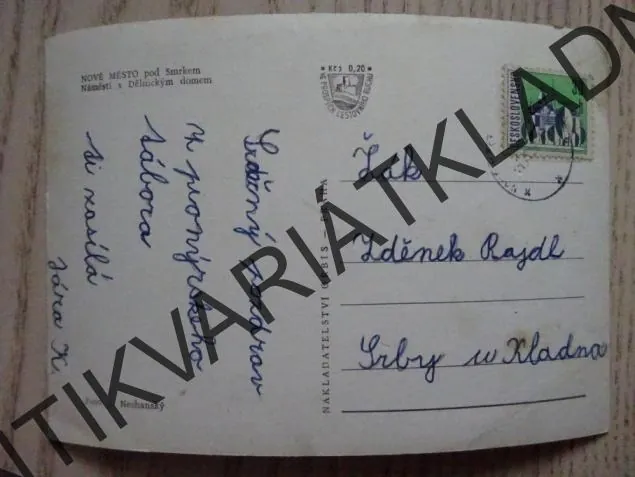 NOVÉ MĚSTO pod Smrkem
Náměstí s Dělnickým domem
Kčs 0,20
VE PROSPĚCH CESTOVNÍHO RUCHU
ČESKOSLOVENSKO
Srdečný pozdrav
z pionýrského
tábora
si zasílá
Jára K.
NAKLADATELSTVÍ ORBIS - PRAHA
Žák
Zděnek Rajdl
Srby u Kladna
Neshanský
ANTIKVARIATKLADN